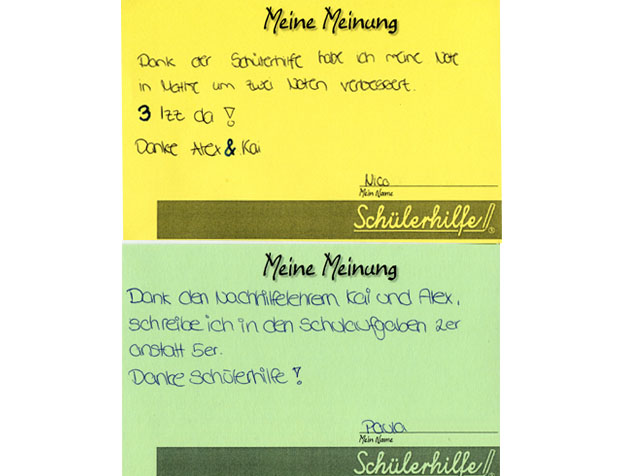 Meine Meinung
Dank der Schülerhilfe habe ich meine Note
in Mathe um zwei Noten verbessert.
3 Izz da !
Danke Alex & Kai
Nico
Mein Name
Schülerhilfe!®
Meine Meinung
Dank den Nachhilfelehrern Kai und Alex,
schreibe ich in den Schulaufgaben 2er
anstatt 5er.
Danke Schülerhilfe !
Paula
Mein Name
Schülerhilfe!